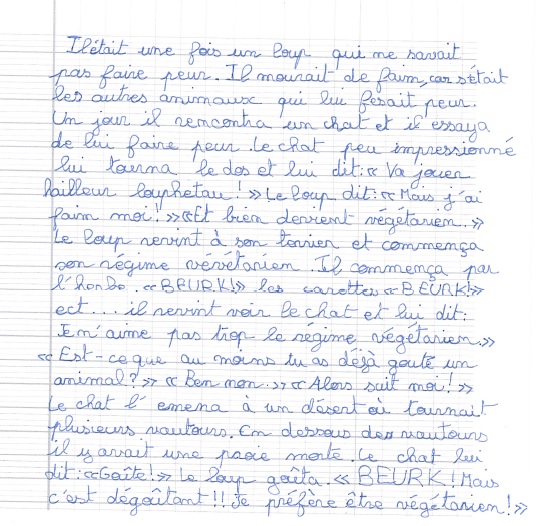 Il était une fois un loup qui ne savait
pas faire peur. Il mourait de faim, car s'était
les autres animaux qui lui fesait peur.
Un jour il rencontra un chat et il essaya
de lui faire peur. Le chat peu impressionné
lui tourna le dos et lui dit : « Va jouer
hailleur louphetau ! » Le loup dit : « Mais j'ai
faim moi ! » « Et bien devient végétarien. »
Le loup revint à son terrier et commença
son régime vévétarien. Il commença par
l'herbe. « BEURK ! » les carottes « BEURK ! »
ect... il revint voir le chat et lui dit :
Je n'aime pas trop le régime végétarien. »
« Est-ce que au moins tu as déjà gouté un
animal ? » « Ben non. » « Alors suit moi ! »
Le chat l'emena à un désert où tournait
plusieurs vautours. En dessous des vautours
il y avait une proie morte. Le chat lui
dit : « Goûte ! » Le loup goûta. « BEURK ! Mais
c'est dégoûtant !! Je préfère être végétarien ! »